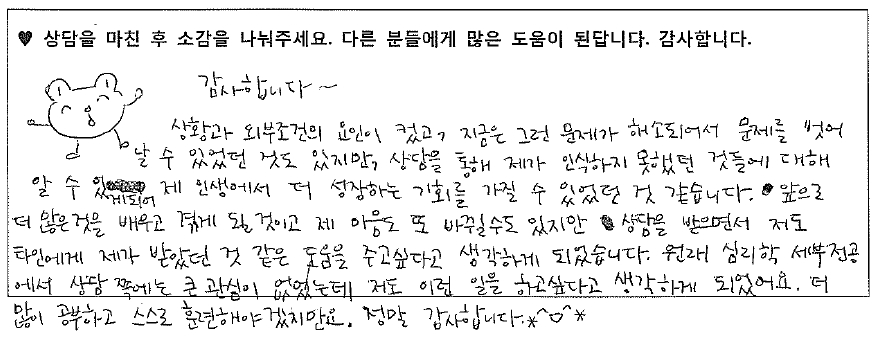 ♥ 상담을 마친 후 소감을 나눠주세요. 다른 분들에게 많은 도움이 된답니다. 감사합니다.
감사합니다~
상황과 외부조건의 요인이 컸고, 지금은 그런 문제가 해소되어서 문제를 벗어
날 수 있었던 것도 있지만, 상담을 통해 제가 인식하지 못했던 것들에 대해
알 수 있게되어 제 인생에서 더 성장하는 기회를 가질 수 있었던 것 같습니다. 앞으로
더 많은것을 배우고 겪게 될것이고 제 마음도 또 바뀔수도 있지만 상담을 받으면서 저도
타인에게 제가 받았던 것 같은 도움을 주고싶다고 생각하게 되었습니다. 원래 심리학 세부전공
에서 상담 쪽에는 큰 관심이 없었는데 저도 이런 일을 하고싶다고 생각하게 되었어요. 더
많이 공부하고 스스로 훈련해야 겠지만요. 정말 감사합니다.*^o^*